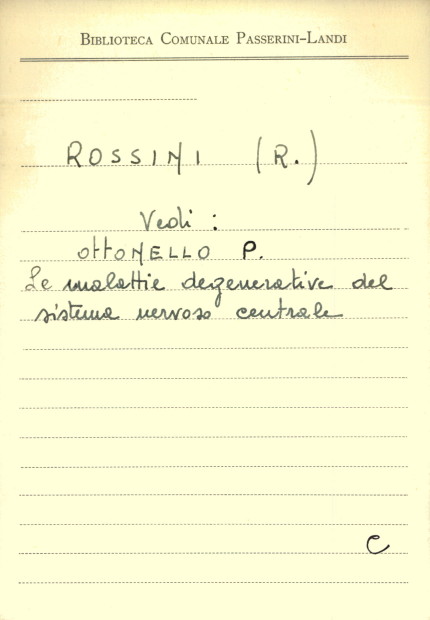 BIBLIOTECA COMUNALE PASSERINI-LANDI
ROSSINI (R.)
Vedi :
OTTONELLO P.
Le malattie degenerative del
sistema nervoso centrale
C